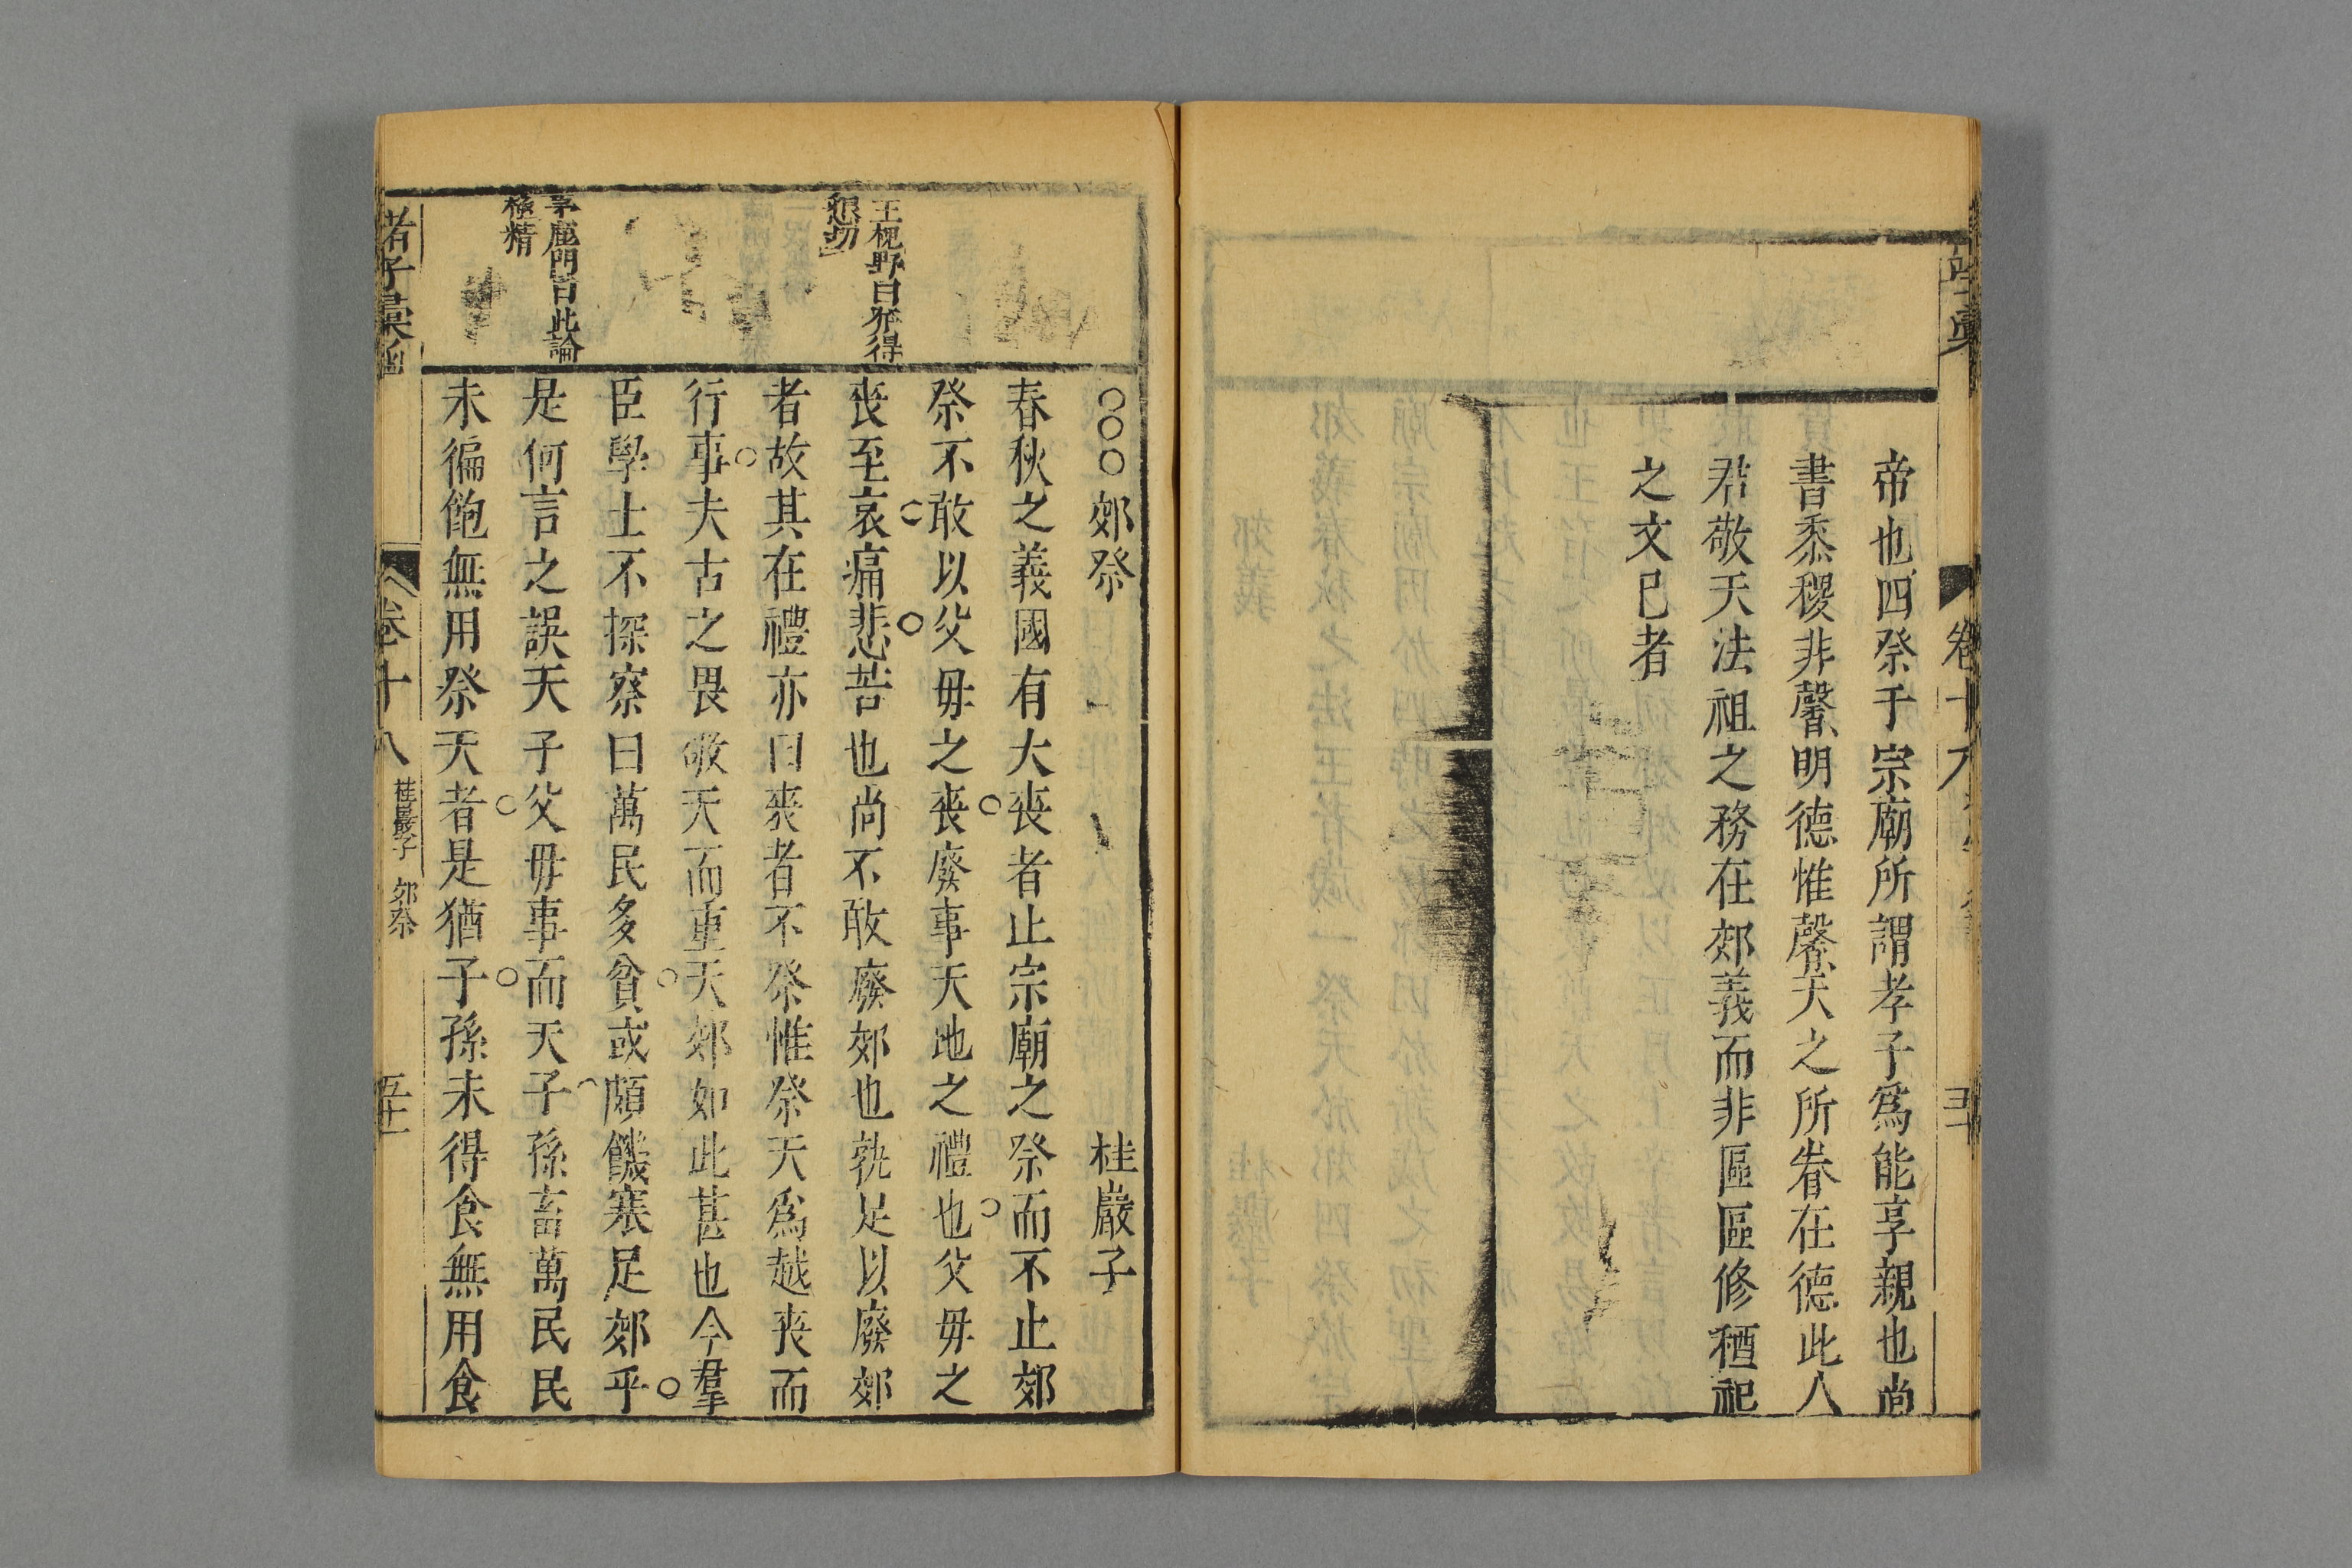 帝也四祭于宗廟所謂孝子爲能享親也尚
書黍稷非馨明德惟馨天之所眷在德此八
君敬天法祖之務在郊義而非區區修稱祀
之文已者
卷十八
五十
○○○郊祭 桂巖子
春秋之義國有大丧者止宗廟之祭而不止郊
祭不敢以父毋之丧廢事天地之禮也父毋之
丧至哀痛悲苦也尚不敢廢郊也孰足以廢郊
者故其在禮亦曰丧者不祭惟祭天爲越丧而
行事夫古之畏敬天而重天郊如此甚也今羣
臣學士不探察曰萬民多貧或頗饑寒足郊乎
是何言之誤天子父毋事而天子孫畜萬民民
未徧飽無用祭天者是猶子孫未得食無用食
王槐野曰發得
懇切
茅鹿門曰此論
極精
諸子彙函
卷十八
桂巖子 郊祭
五十一